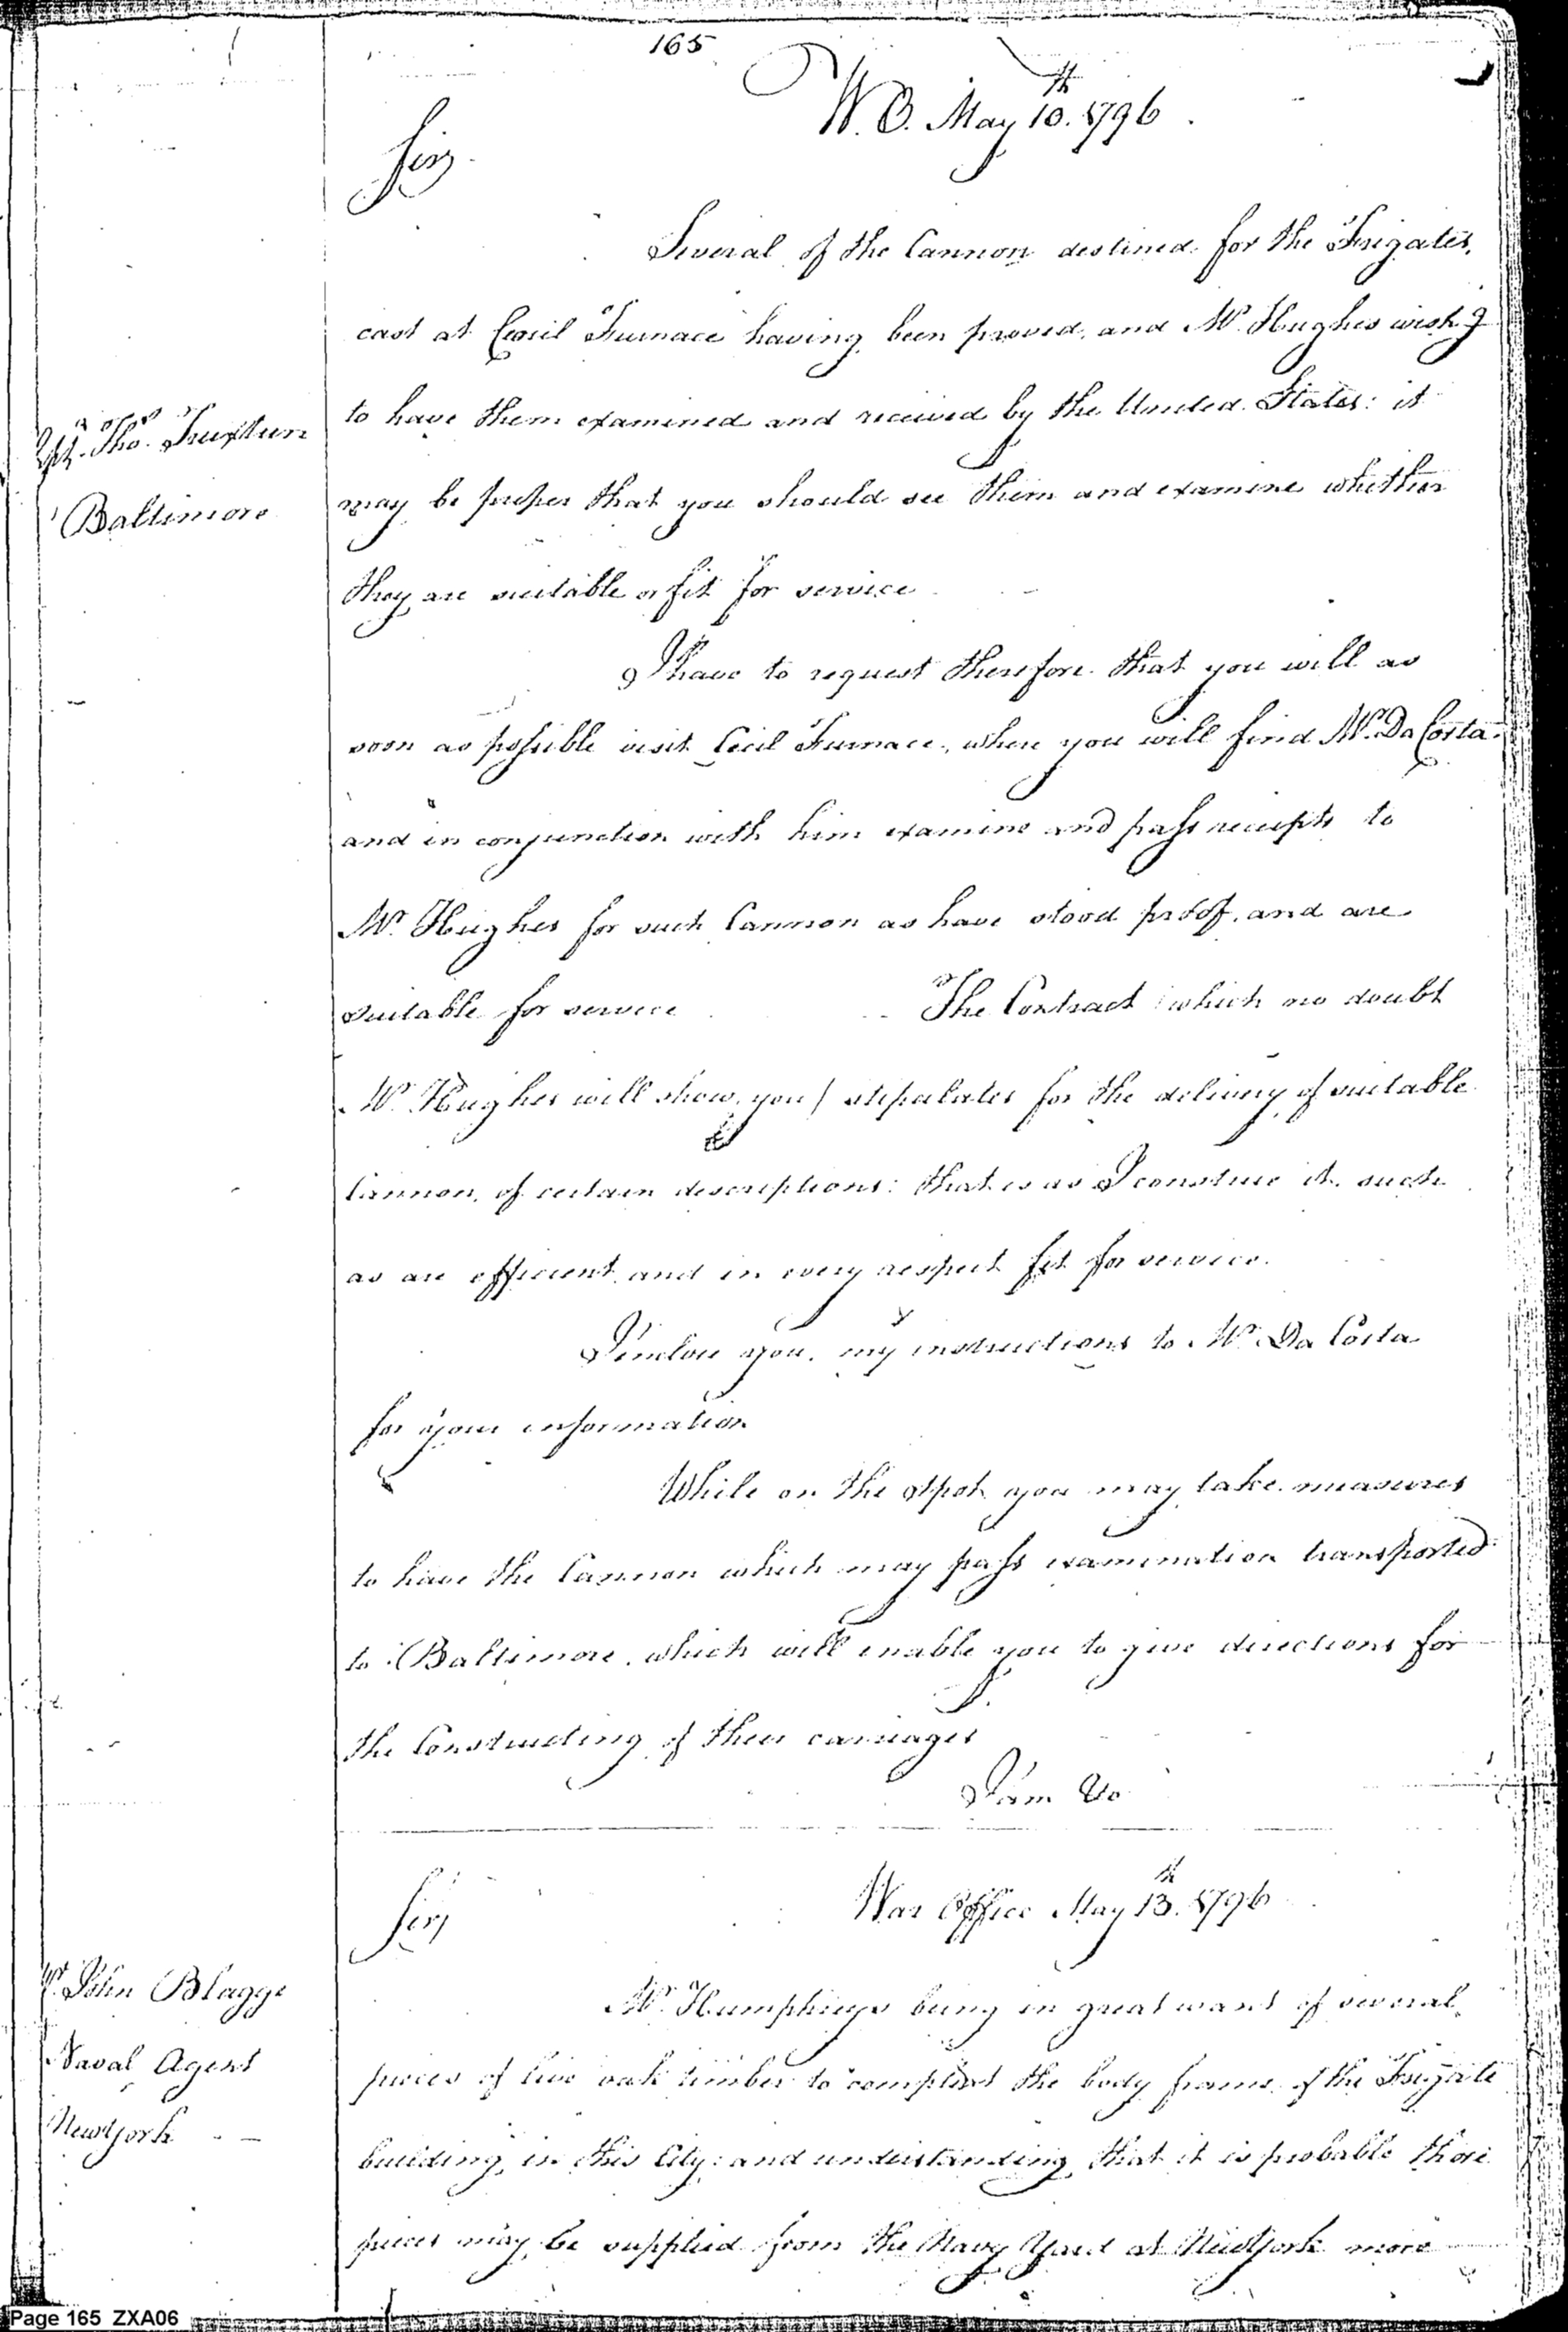 165
W. O. May 10.th 1796.
Sir,
Several of the Cannon destined for the Frigates,
cast at Cecil Furnace having been proved, and Mr. Hughes wish.g
to have them examined and received by the United States: it
Capt. Tho.s Truxtun
Baltimore
may be proper that you should see them and examine whether
they are suitable or fit for service
I have to request therefore that you will as
soon as possible visit Cecil Furnace, where you will find Mr. Da Costa
and in conjunction with him examine and pass receipts to
Mr. Hughes for such Cannon as have stood proof, and are
suitable for service The Contract (which no doubt
Mr. Hughes will show you) stipulates for the delivery of suitable
Cannon, of certain descriptions: that is as I construe it, such
as are efficient and in every respect fit for service.
I inclose you, my instructions to Mr. Da Costa
for your information
While on the spot you may take measures
to have the Cannon which may pass examination transported
to Baltimore, which will enable you to give directions for
the Constructing of their carriages
I am &c
War Office May 13.th 1796
Sir,
Mr. John Blagge
Naval Agent
Newyork
Mr. Humphreys being in great want of several
pieces of live oak timber to compleat the body frame of the Frigate
building in this City: and understanding that it is probable those
pieces may be supplied from the Navy Yard at Newyork more
Page 165 ZXA06